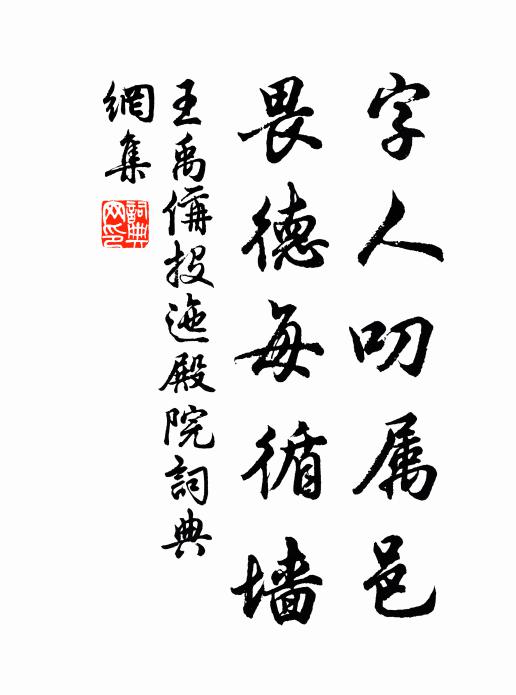 字人叨属邑
畏德每循墙
王禹偁投迤殿院詞典
網集
詞典網印